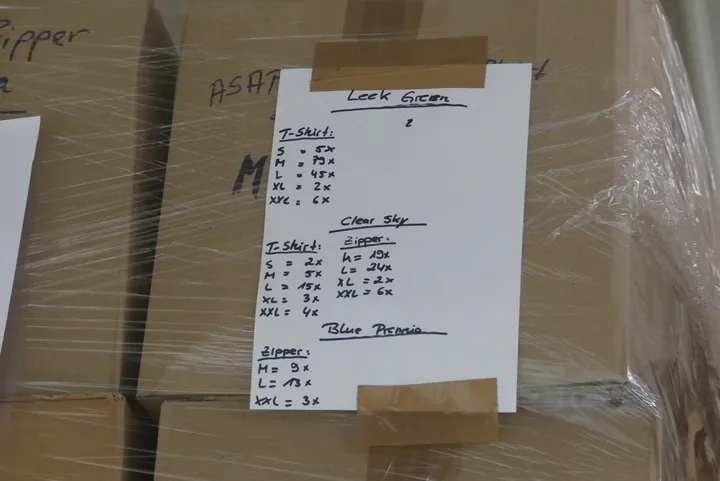 Zipper
ASAP
M
Leek Green
2
T-Shirt:
S = 5x
M = 79x
L = 45x
XL = 2x
XXL = 6x
Clear Sky
T-Shirt:
S = 2x
M = 5x
L = 15x
XL = 3x
XXL = 4x
Zipper:
M = 19x
L = 24x
XL = 2x
XXL = 6x
Blue
Zipper:
M = 9x
L = 13x
XXL = 3x